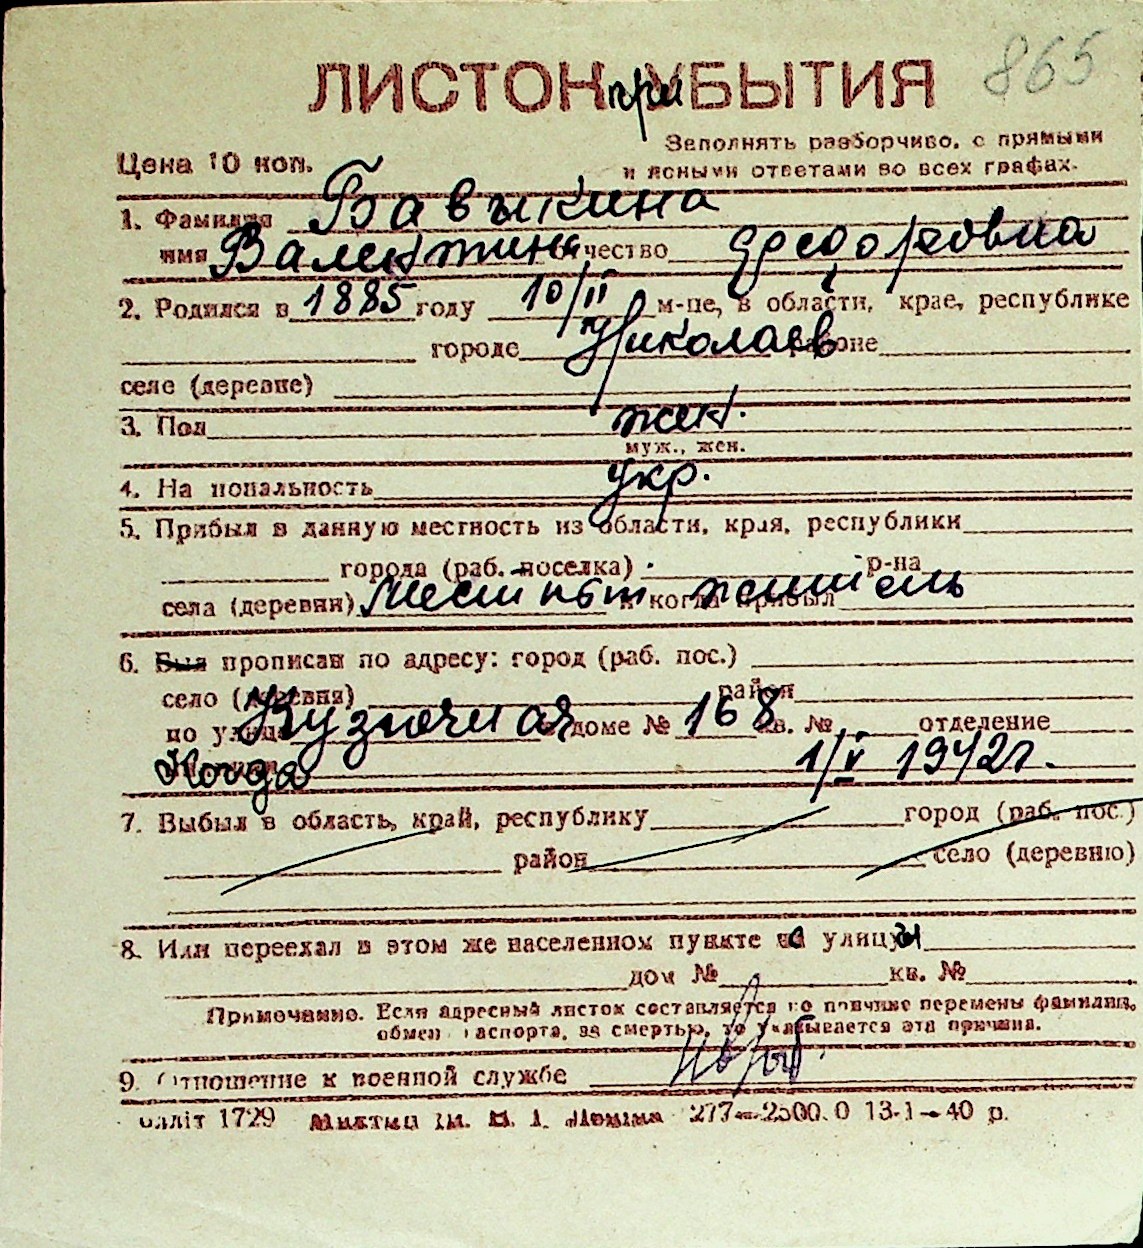 865
ЛИСТОК при УБЫТИЯ
Заполнять разборчиво, с прямыми
Цена 10 коп. и ясными ответами во всех графах.
1. Фамилия Бавыкина
имя Валентина отчество Федоровна
2. Родился в 1885 году 10/II м-це, в области, крае, республике
городе Николаев районе
селе (деревне)
3. Пол жен.
муж., жен.
4. Национальность укр.
5. Прибыл в данную местность из области, края, республики
города (раб. поселка) р-на
села (деревни) и когда прибыл житель
6. Был прописан по адресу: город (раб. пос.)
село (деревня) район
по улице Кузнечная в доме № 168 кв. № отделение
Когда 1/V 1942г.
7. Выбыл в область, край, республику город (раб. пос.)
район село (деревню)
8. Или переехал в этом же населенном пункте с улицы
дом № кв. №
Примечание. Если адресный листок составляется по причине перемены фамилии,
обмен паспорта, за смертью, то указывается эта причина.
9. Отношение к военной службе
1729 277—2500.0 13-1—40 р.